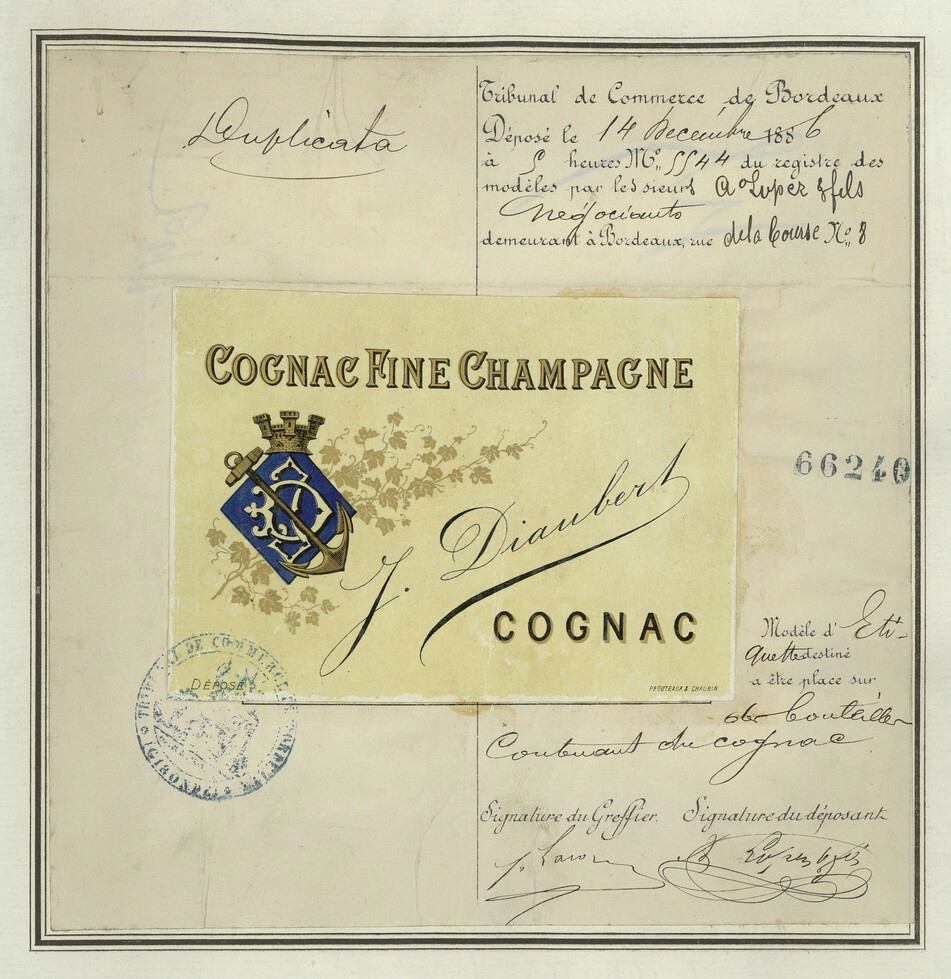 Duplicata
Tribunal de Commerce de Bordeaux
Déposé le 14 Decembre 1886
à 5 heures Nº 5544 du registre des
modèles par les sieurs Aº Lopez & fils
Négociants
demeurant à Bordeaux, rue de la Course Nº 8
COGNAC FINE CHAMPAGNE
J. Diaubert
COGNAC
DÉPOSÉ
PROUTEAUX & CHAUBIN
66240
Modèle d' Eti-
quette destiné
a être place sur
des bouteilles
Contenant du cognac
TRIBUNAL DE COMMERCE
(GIRONDE)
Signature du Greffier. Signature du déposant